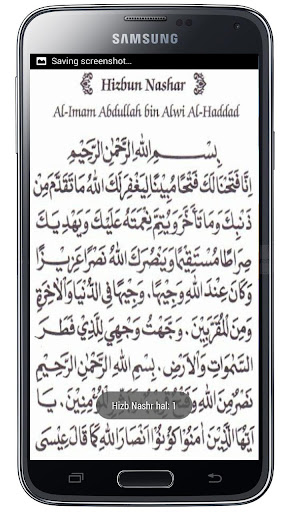 SAMSUNG
Saving screenshot...
Hizbun Nashar
Al-Imam Abdullah bin Alwi Al-Haddad
بِسْمِ اللهِ الرَّحْمٰنِ الرَّحِيْمِ
اِنَّا فَتَحْنَا لَكَ فَتْحًا مُبِيْنًا لِيَغْفِرَ لَكَ اللهُ مَا تَقَدَّمَ مِنْ
ذَنْبِكَ وَمَا تَأَخَّرَ وَيُتِمَّ نِعْمَتَهُ عَلَيْكَ وَيَهْدِيَكَ
صِرَاطًا مُسْتَقِيْمًا وَيَنْصُرَكَ اللهُ نَصْرًا عَزِيْزًا
وَكَانَ عِنْدَ اللهِ وَجِيْهًا. وَجِيْهًا فِي الدُّنْيَا وَالْآخِرَةِ
وَمِنَ الْمُقَرَّبِيْنَ. وَجَّهْتُ وَجْهِيَ لِلَّذِيْ فَطَرَ
السَّمٰوَاتِ وَالْاَرْضَ. بِسْمِ اللهِ الرَّحْمٰنِ الرَّحِيْمِ
نَصْرٌ مِنَ اللهِ وَفَتْحٌ قَرِيْبٌ الْمُؤْمِنِيْنَ. يَا
Hizb Nashr hal: 1
اَيُّهَا الَّذِيْنَ اٰمَنُوْا كُوْنُوْا اَنْصَارَ اللهِ كَمَا قَالَ عِيْسَى